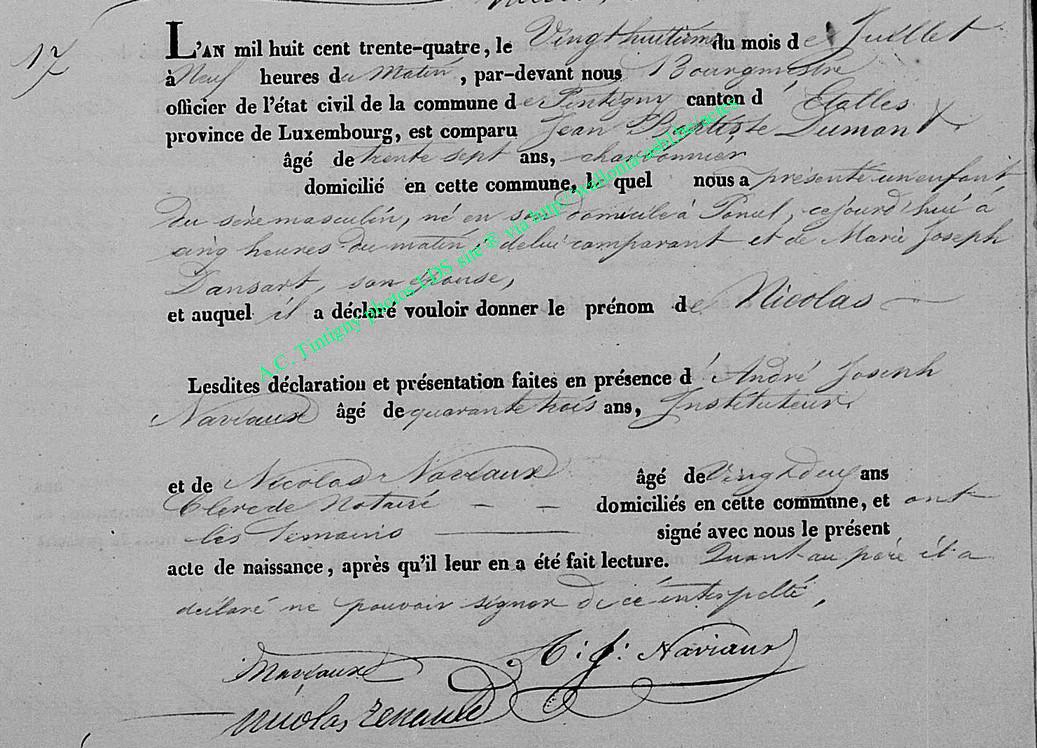 17
L'AN mil huit cent trente-quatre, le Vingt huitième du mois de Juillet
à Neuf heures du Matin, par-devant nous Bourgmestre
officier de l'état civil de la commune de Tintigny canton d'Etalles
province de Luxembourg, est comparu Jean Baptiste Dumont
âgé de trente sept ans, charbonnier
domicilié en cette commune, le quel nous a présenté un enfant
du sèxe masculin, né en son domicile à Ponul, cejourd'hui a
cinq heures du matin, de lui comparant et de Marie Joseph
Dansart, son épouse,
et auquel il a déclaré vouloir donner le prénom de Nicolas
Lesdites déclaration et présentation faites en présence d'André Joseph
Naviaux âgé de quarante trois ans, Instituteur
et de Nicolas Naviaux âgé de Vingt deux ans
Clerc de Notaire - - domiciliés en cette commune, et ont
les Temoins signé avec nous le présent
acte de naissance, après qu'il leur en a été fait lecture. Quant au père il a
déclaré ne pouvoir signer de ce interpellé,
A: J: Naviaux
Naviaux
Nicolas
A.C. Tintigny photos LDS, site ® via http://wallonia-asbl.be/actes